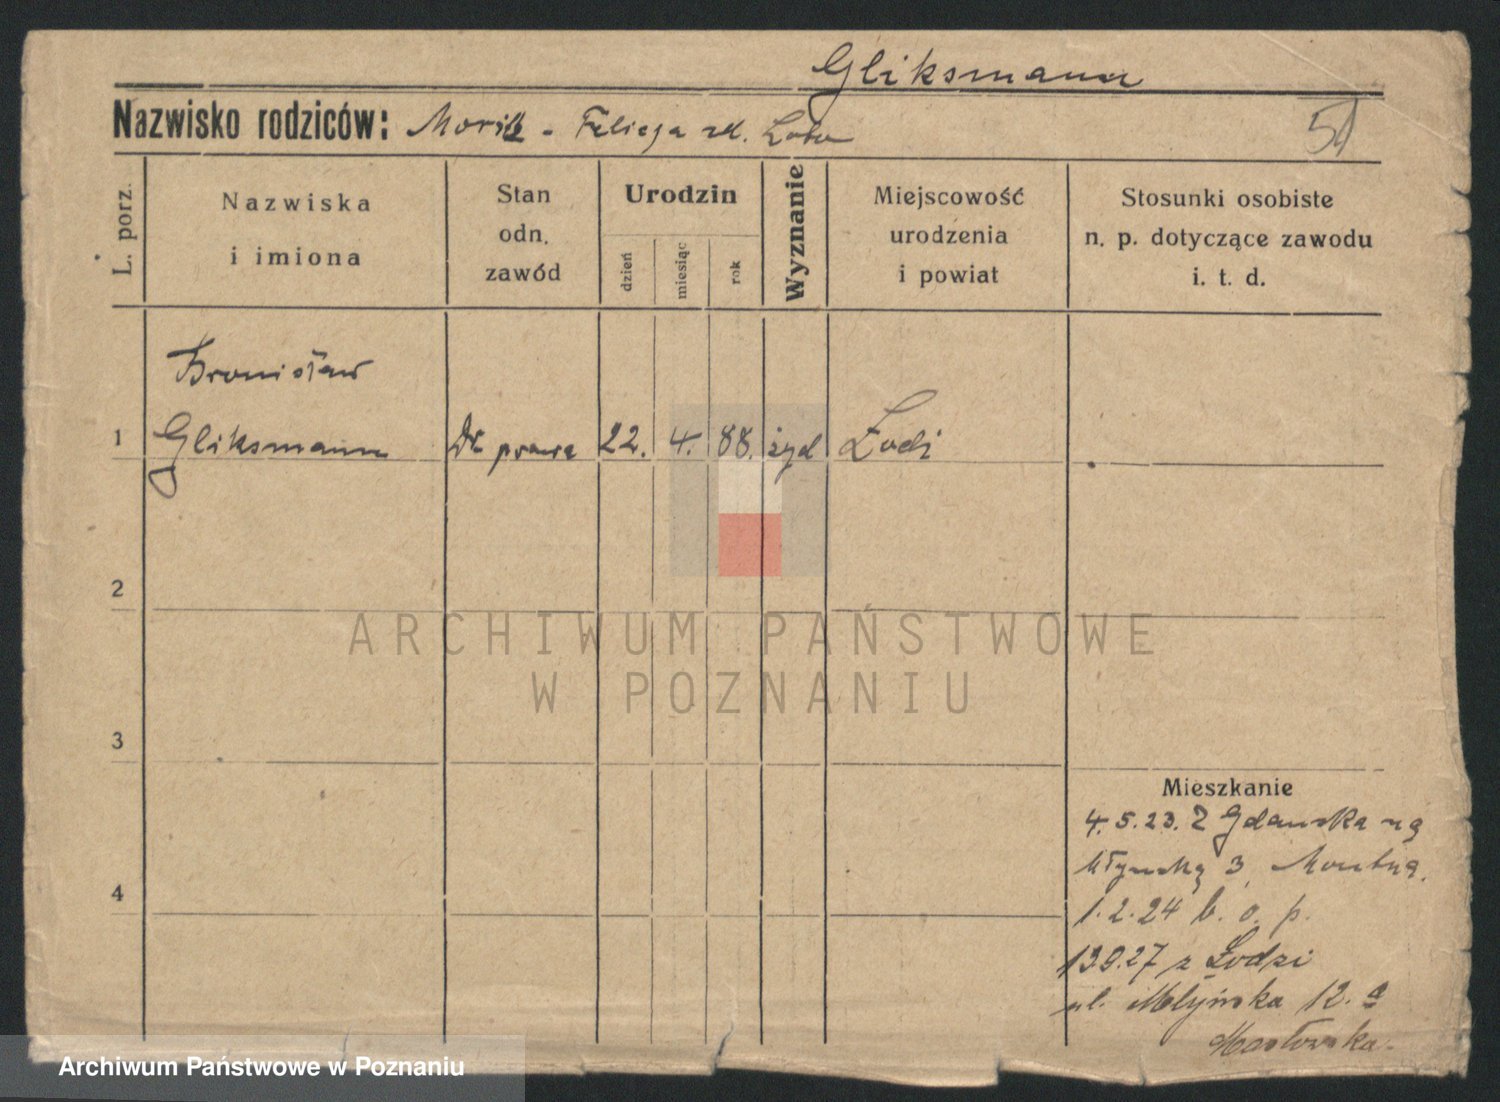 Gliksmann
Nazwisko rodziców: Moritz - Felicja zd.
51
L. porz.
Nazwiska
i imiona
Stan
odn.
zawód
Urodzin
dzień
miesiąc
rok
Wyznanie
Miejscowość
urodzenia
i powiat
Stosunki osobiste
n. p. dotyczące zawodu
i. t. d.
Bronisław
1 Gliksmann Dr. prawa 22. 4. 88. żyd Łodź
2
ARCHIWUM PAŃSTWOWE
W POZNANIU
3
Mieszkanie
4.5.23. Z Gdańska na
Młyńską 3
4
1.2.24 b. o. p.
13.9.27 z Łodzi
ul. Młyńska 12. a
Masłowska.
Archiwum Państwowe w Poznaniu